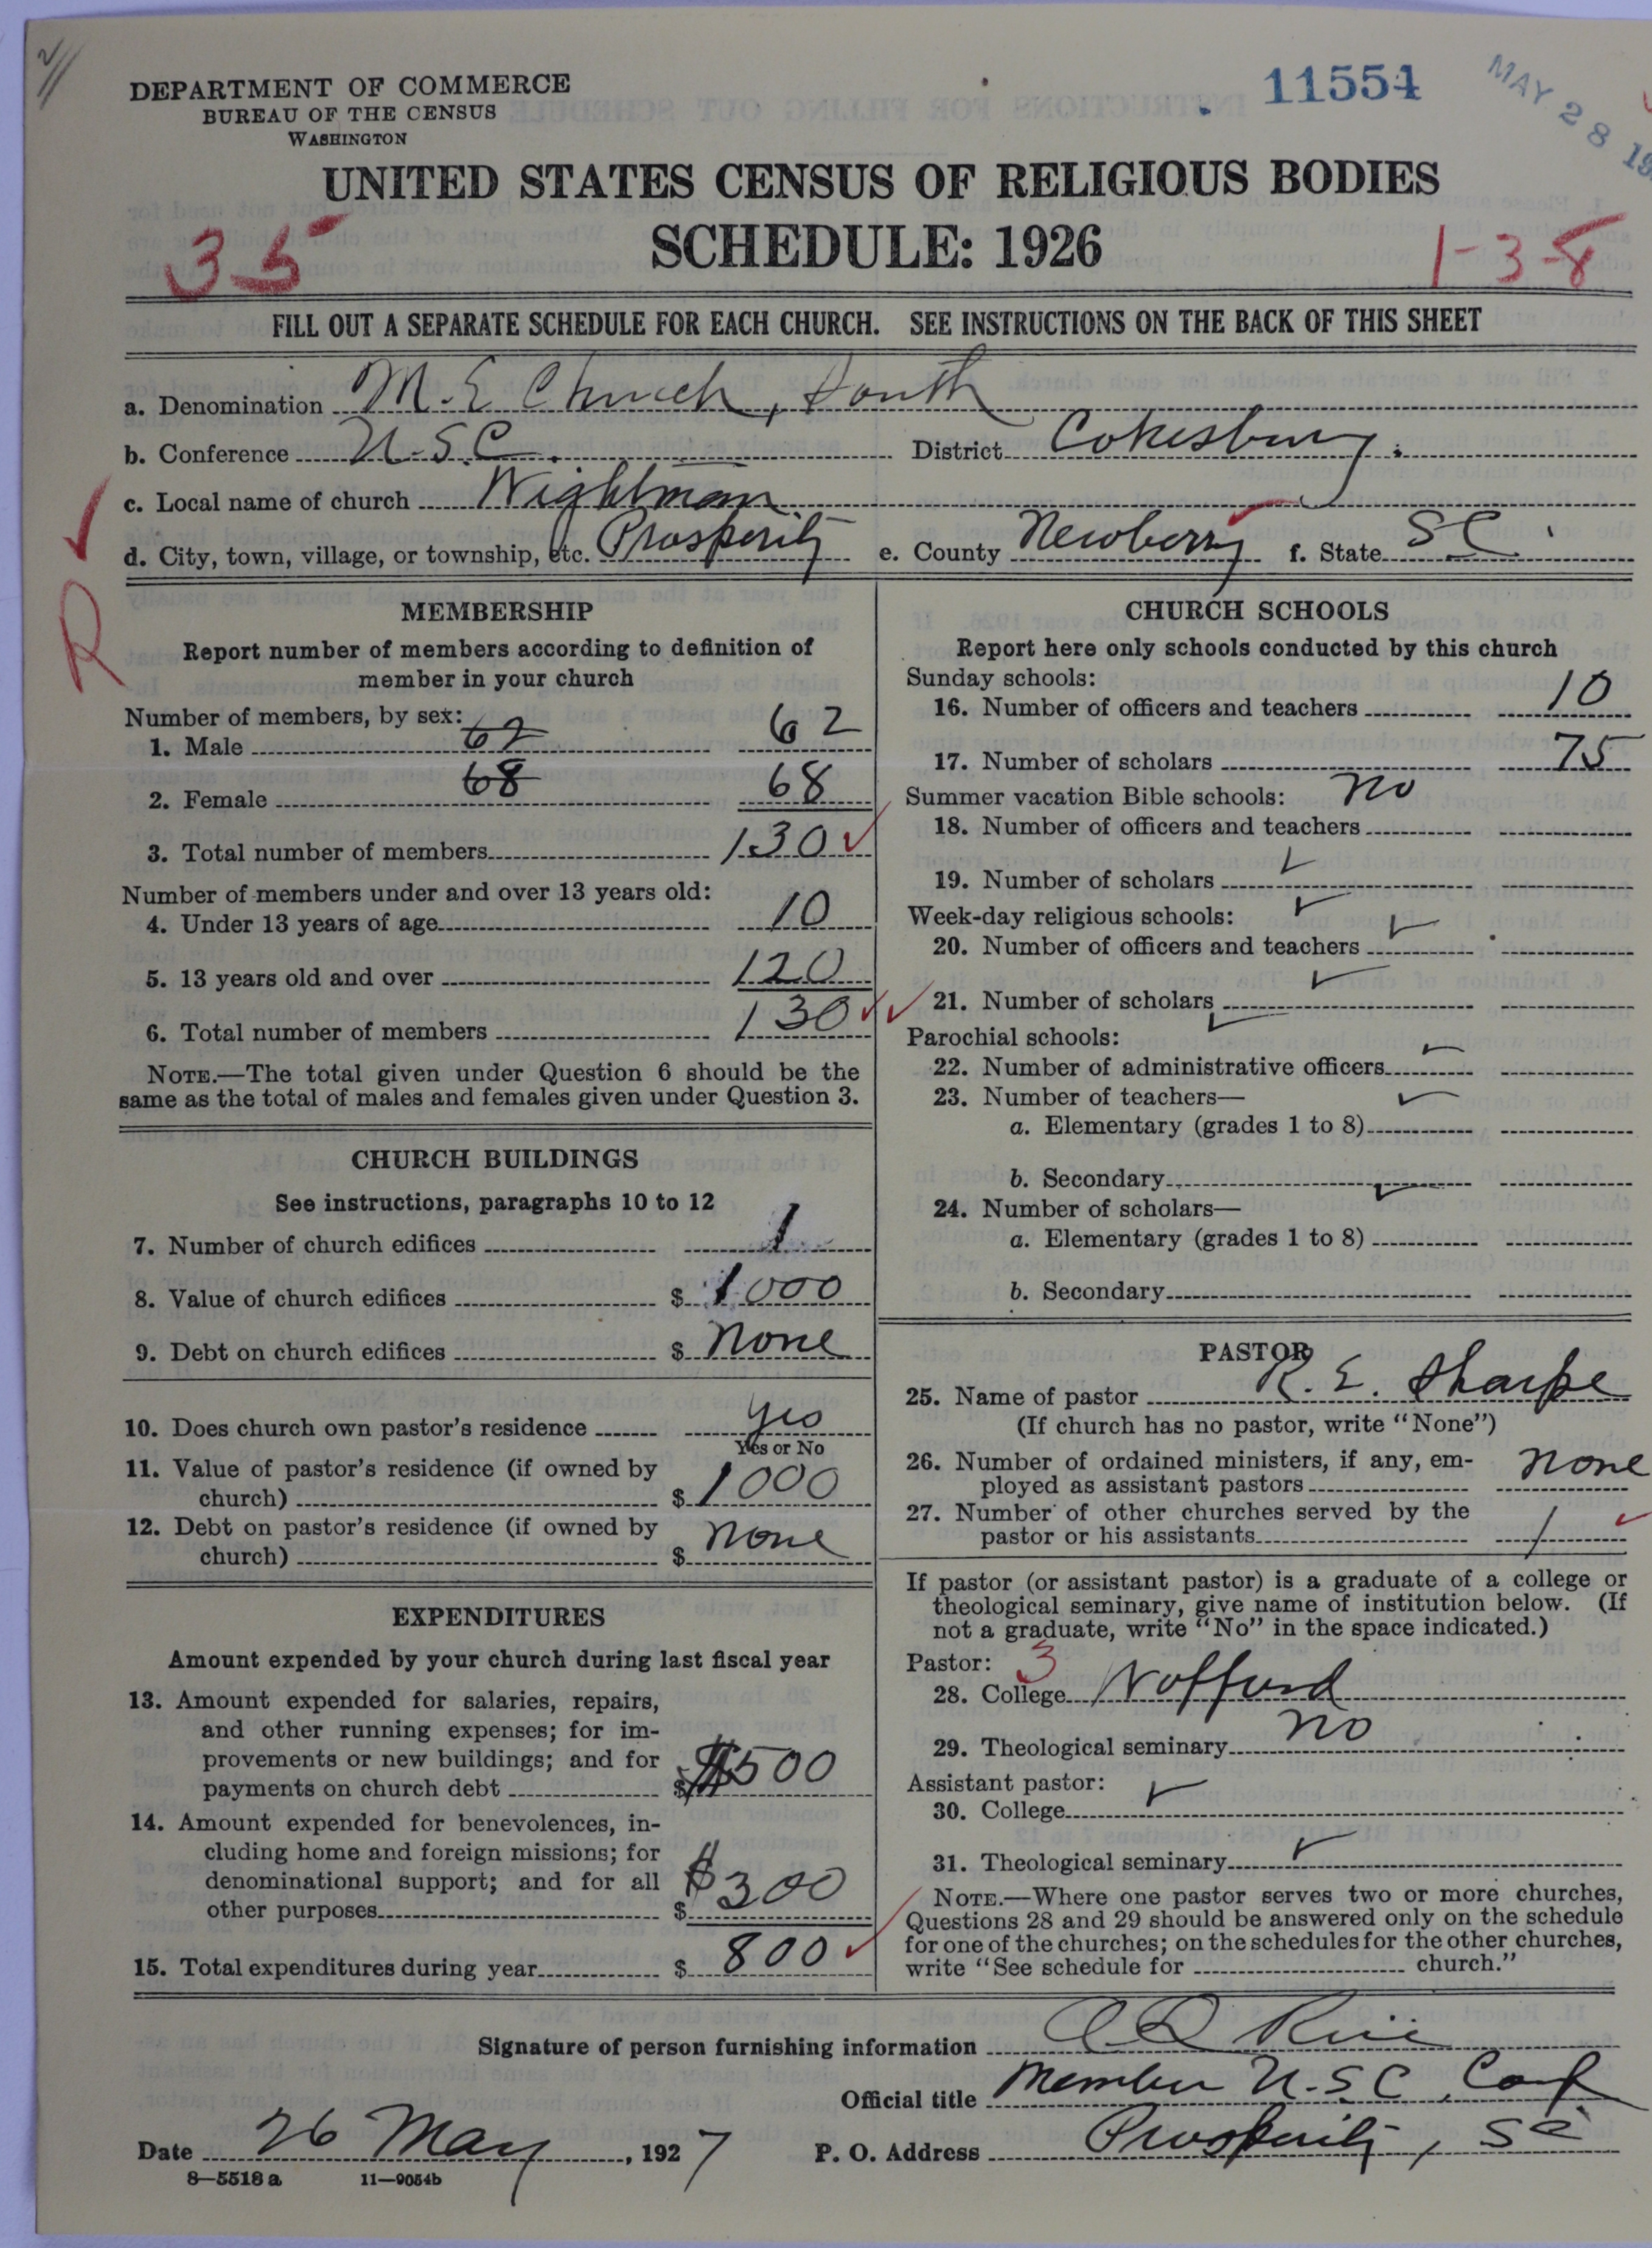 DEPARTMENT OF COMMERCE
BUREAU OF THE CENSUS
WASHINGTON
11554
MAY 28 19
UNITED STATES CENSUS OF RELIGIOUS BODIES
SCHEDULE: 1926
35
1-3-8
FILL OUT A SEPARATE SCHEDULE FOR EACH CHURCH. SEE INSTRUCTIONS ON THE BACK OF THIS SHEET
a. Denomination M. E Church, South
b. Conference U.S.C. District Cokesbury.
c. Local name of church Wightman
d. City, town, village, or township, etc. Prosperity e. County Newberry f. State SC.
R
MEMBERSHIP
Report number of members according to definition of
member in your church
Number of members, by sex:
1. Male 62 62
2. Female 68 68
3. Total number of members 130
Number of members under and over 13 years old:
4. Under 13 years of age 10
5. 13 years old and over 120
6. Total number of members 130
NOTE.—The total given under Question 6 should be the
same as the total of males and females given under Question 3.
CHURCH BUILDINGS
See instructions, paragraphs 10 to 12
7. Number of church edifices 1
8. Value of church edifices $ 1000
9. Debt on church edifices $ none
10. Does church own pastor's residence yes
Yes or No
11. Value of pastor's residence (if owned by
church) $ 1000
12. Debt on pastor's residence (if owned by
church) $ none
EXPENDITURES
Amount expended by your church during last fiscal year
13. Amount expended for salaries, repairs,
and other running expenses; for im-
provements or new buildings; and for
payments on church debt $ $500
14. Amount expended for benevolences, in-
cluding home and foreign missions; for
denominational support; and for all
other purposes $ $300
15. Total expenditures during year $ 800
CHURCH SCHOOLS
Report here only schools conducted by this church
Sunday schools:
16. Number of officers and teachers 10
17. Number of scholars 75
Summer vacation Bible schools: no
18. Number of officers and teachers
19. Number of scholars
Week-day religious schools:
20. Number of officers and teachers
21. Number of scholars
Parochial schools:
22. Number of administrative officers
23. Number of teachers—
a. Elementary (grades 1 to 8)
b. Secondary
24. Number of scholars—
a. Elementary (grades 1 to 8)
b. Secondary
PASTOR
25. Name of pastor R. E. Sharpe
(If church has no pastor, write "None")
26. Number of ordained ministers, if any, em-
ployed as assistant pastors none
27. Number of other churches served by the
pastor or his assistants 1
If pastor (or assistant pastor) is a graduate of a college or
theological seminary, give name of institution below. (If
not a graduate, write "No" in the space indicated.)
Pastor: 3
28. College Wofford
29. Theological seminary no
Assistant pastor:
30. College
31. Theological seminary
NOTE.—Where one pastor serves two or more churches,
Questions 28 and 29 should be answered only on the schedule
for one of the churches; on the schedules for the other churches,
write "See schedule for church."
Signature of person furnishing information
Official title Member U.S.C. Conf
Date 26 May, 1927 P. O. Address Prosperity, SC
8—5518 a 11—9054b